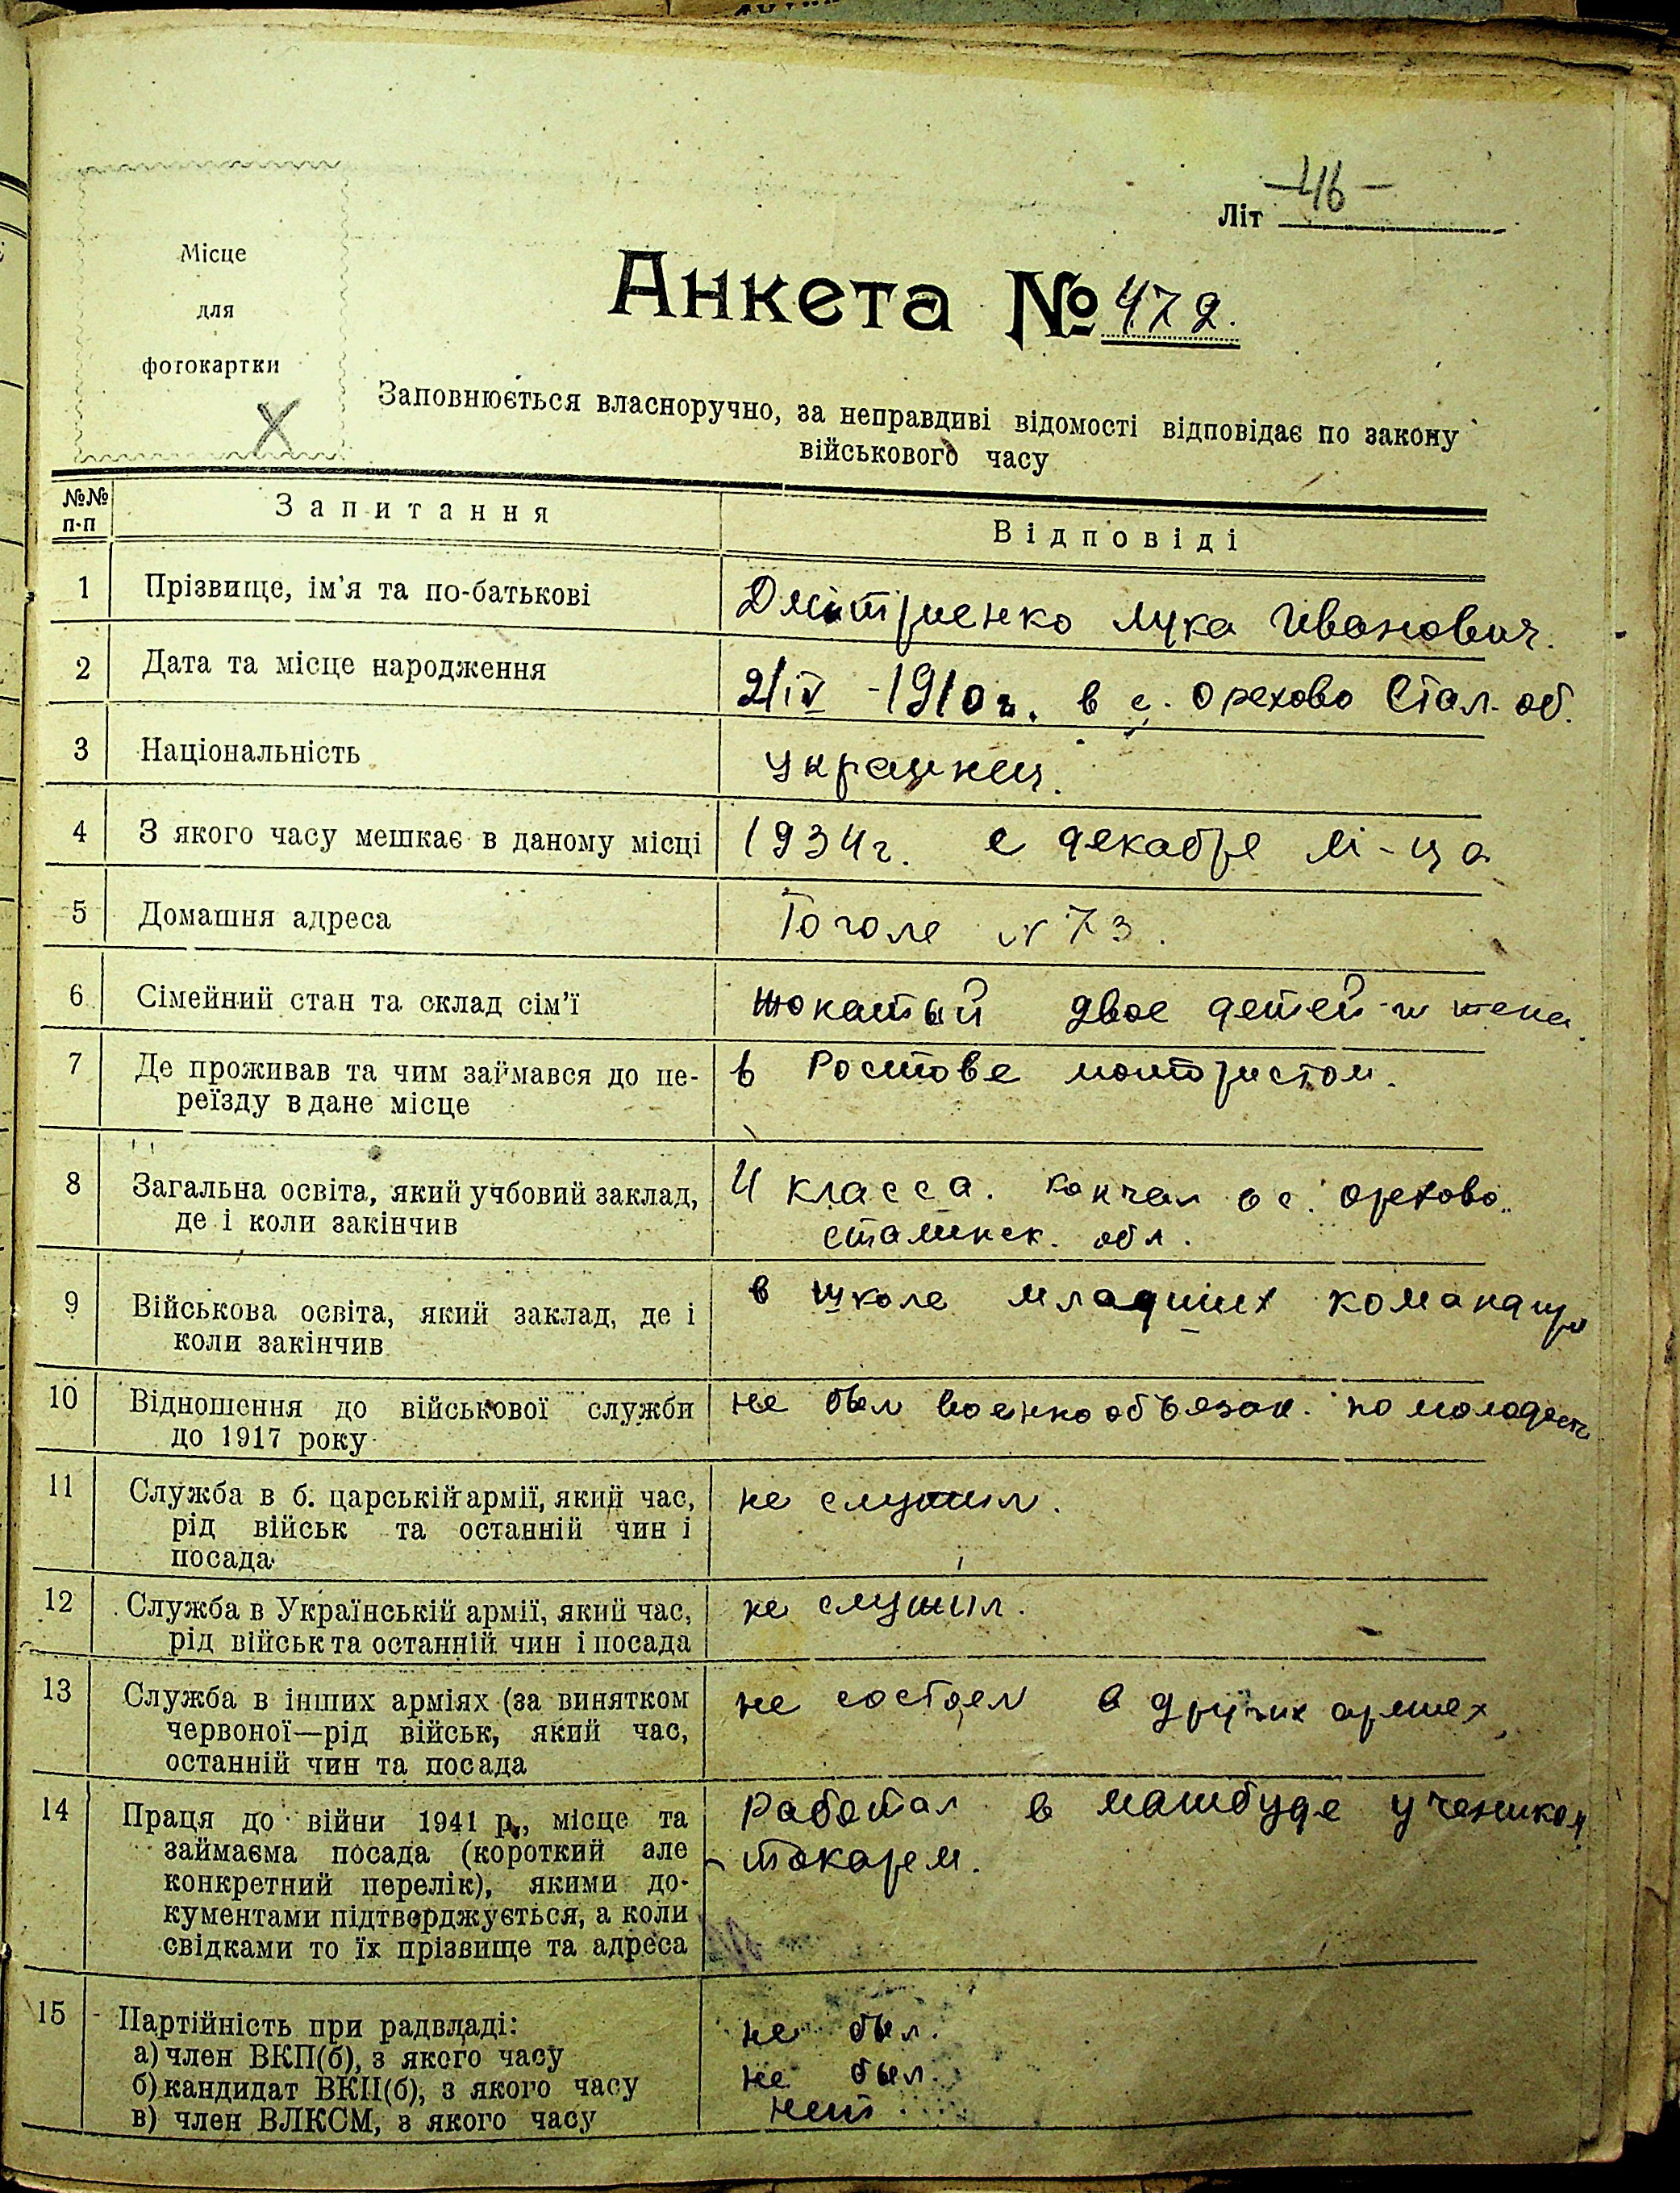 Літ -46-
Місце
для
фотокартки
Анкета № 472.
Заповнюється власноручно, за неправдиві відомості відповідає по закону
військового часу
№№ п-п Запитання Відповіді
1 Прізвище, ім'я та по-батькові Дмітриенко Лука Иванович.
2 Дата та місце народження 2/IV -1910г. в с. Орехово Стал. об.
3 Національність украинец.
4 З якого часу мешкає в даному місці 1934г. с декабре м-ца
5 Домашня адреса Гоголе № 73.
6 Сімейний стан та склад сім'ї жонатый двое детей и жена.
7 Де проживав та чим займався до пе- в Ростове монтористом.
реїзду в дане місце
8 Загальна освіта, який учбовий заклад, 4 класса. кончал в с. Орехово.
де і коли закінчив сталинск. обл.
9 Військова освіта, який заклад, де і в школе младших
коли закінчив
10 Відношення до військової служби не был военнообъязан. по молодости
до 1917 року
11 Служба в б. царській армії, який час, не служил.
рід військ та останній чин і
посада
12 Служба в Українській армії, який час, не служил.
рід військ та останній чин і посада
13 Служба в інших арміях (за винятком не состоел в других армиех
червоної—рід військ, який час,
останній чин та посада
14 Праця до війни 1941 р., місце та Работал в машбуде учеником
займаєма посада (короткий але токарем.
конкретний перелік), якими до-
кументами підтверджується, а коли
свідками то їх прізвище та адреса
15 Партійність при радвладі: не был.
а) член ВКП(б), з якого часу не был.
б) кандидат ВКП(б), з якого часу нет
в) член ВЛКСМ, з якого часу